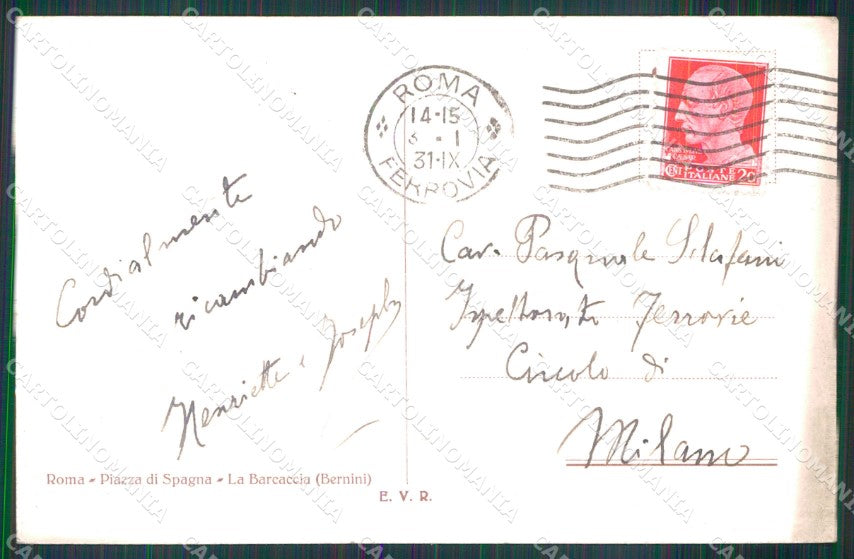 Cordialmente
ricambiando
Henriette e Joseph
Roma - Piazza di Spagna - La Barcaccia (Bernini)
E. V. R.
ROMA
14-15
- 1
31·IX
FERROVIA
POSTE
CENT ITALIANE 20
Cav. Pasquale
Ferrovie
Circolo di
Milano
CARTOLINOMANIA